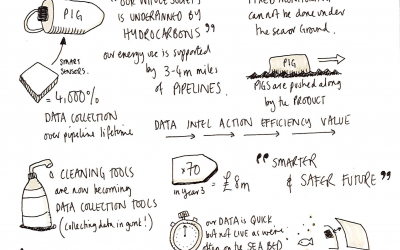 PIG
SMART
SENSORS.
= 4,000%
DATA COLLECTION
over pipeline lifetime
"OUR WHOLE SOCIETY
IS UNDERPINNED BY
HYDROCARBONS"
our energy use is supported
by 3-4m miles
of PIPELINES.
cannot be done under
the sea or Ground.
PIG
PIGs are pushed along
by the PRODUCT
DATA INTEL ACTION EFFICIENCY VALUE
CLEANING TOOLS
are now becoming
DATA COLLECTION TOOLS
(collecting data in gunk!)
x70
in year 3
= £8m
"SMARTER
& SAFER FUTURE"
our DATA is QUICK
but not LIVE as we're
often on the SEA BED